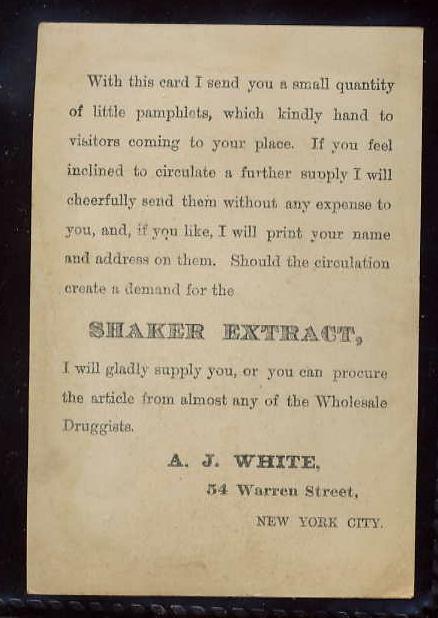 With this card I send you a small quantity
of little pamphlets, which kindly hand to
visitors coming to your place. If you feel
inclined to circulate a further supply I will
cheerfully send them without any expense to
you, and, if you like, I will print your name
and address on them. Should the circulation
create a demand for the
SHAKER EXTRACT,
I will gladly supply you, or you can procure
the article from almost any of the Wholesale
Druggists.
A. J. WHITE,
54 Warren Street,
NEW YORK CITY.